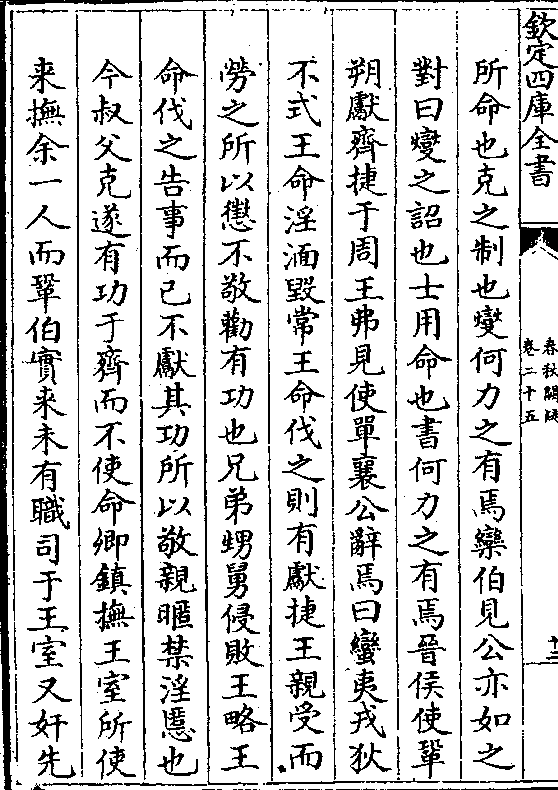 欽定四庫全書
春秋闕疑
卷二十五
十二
所命也克之制也燮何力之有焉欒伯見公亦如之
對曰燮之詔也士用命也書何力之有焉晉侯使鞏
朔獻齊捷于周王弗見使單襄公辭焉曰蠻夷戎狄
不式王命淫湎毀常王命伐之則有獻捷王親受而
勞之所以懲不敬勸有功也兄弟甥舅侵敗王略王
命伐之告事而已不獻其功所以敬親暱禁淫慝也
今叔父克遂有功于齊而不使命卿鎮撫王室所使
来撫余一人而鞏伯實来未有職司于王室又奸先